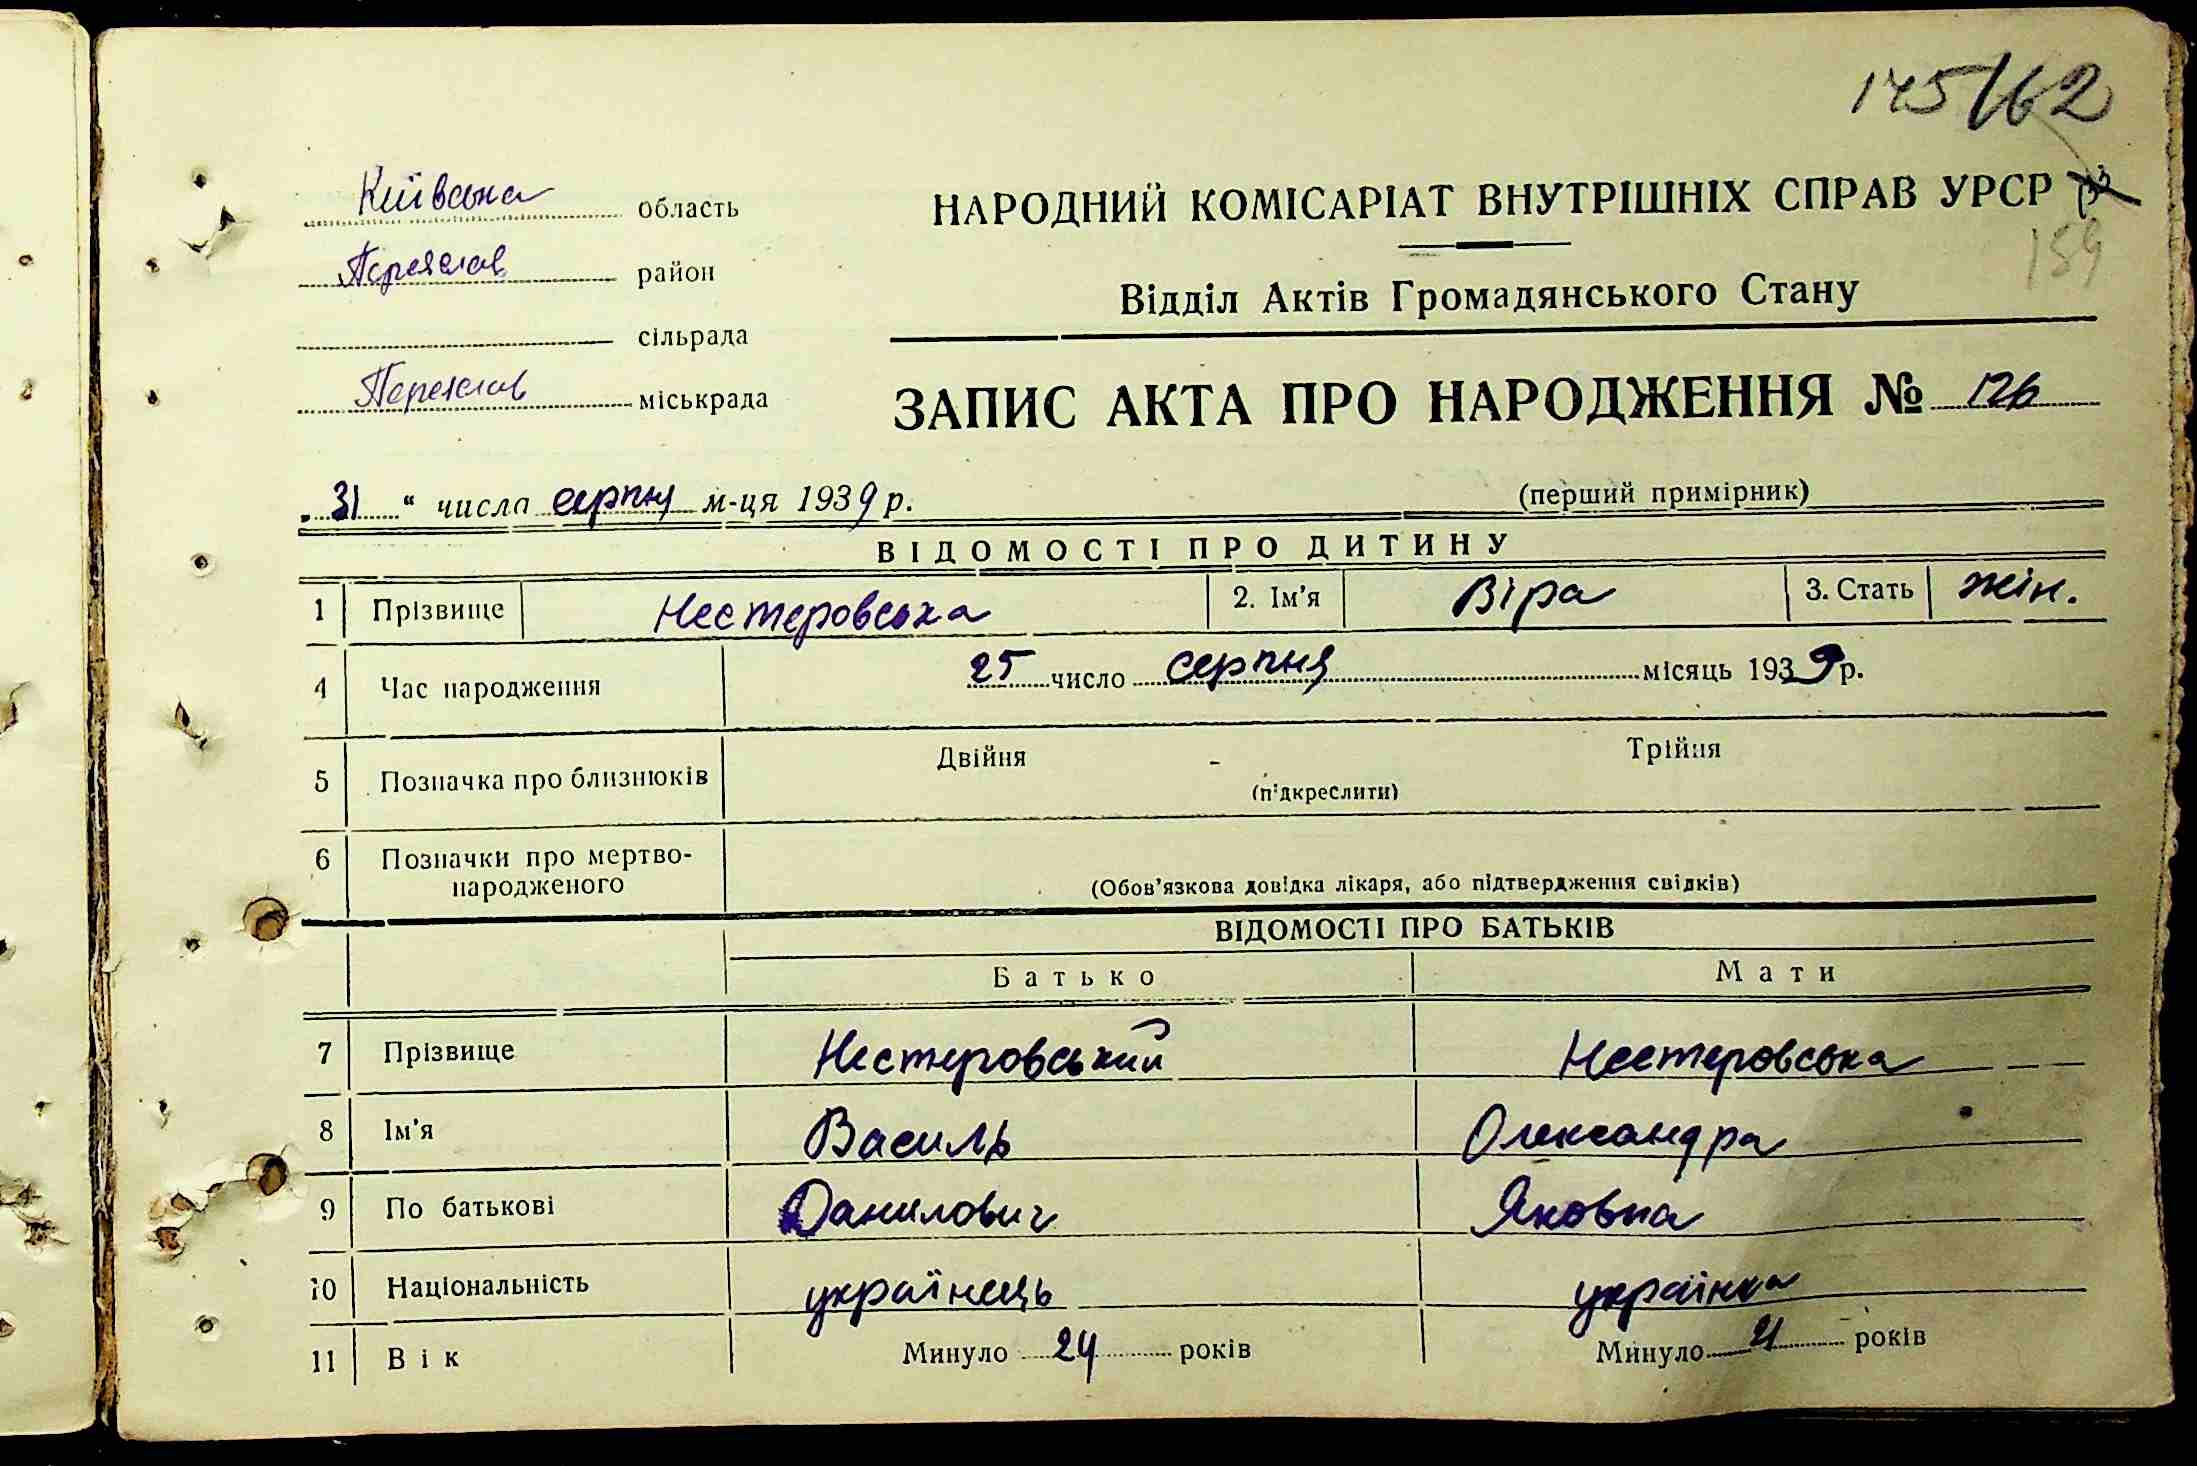 145/162
Київська область
НАРОДНИЙ КОМІСАРІАТ ВНУТРІШНІХ СПРАВ УРСР
159
Переяслав район
Відділ Актів Громадянського Стану
сільрада
Переяслав міськрада
ЗАПИС АКТА ПРО НАРОДЖЕННЯ № 126
„31“ числа серпня м-ця 1939 р.
(перший примірник)
ВІДОМОСТІ ПРО ДИТИНУ
1 Прізвище Нестеровська 2. Ім'я Віра 3. Стать жін.
4 Час народження 25 число серпня місяць 1939 р.
5 Позначка про близнюків Двійня - Трійня
(підкреслити)
6 Позначки про мертво-
народженого
(Обов'язкова довідка лікаря, або підтвердження свідків)
ВІДОМОСТІ ПРО БАТЬКІВ
Батько Мати
7 Прізвище Нестеровський Нестеровська
8 Ім'я Василь Олександра
9 По батькові Данилович Яковна
10 Національність українець українка
11 Вік Минуло 24 років Минуло 21 років